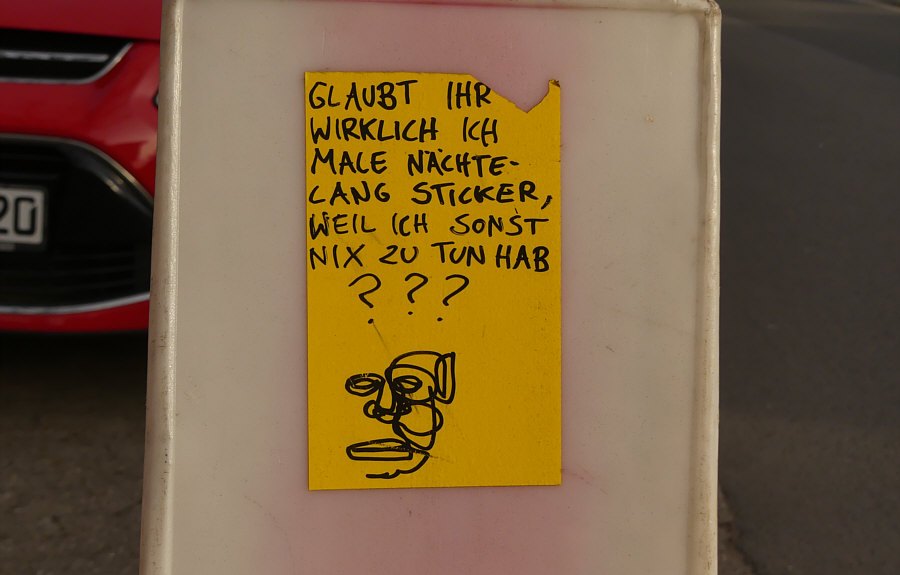 GLAUBT IHR
WIRKLICH ICH
MALE NÄCHTE-
LANG STICKER,
WEIL ICH SONST
NIX ZU TUN HAB
? ? ?
20